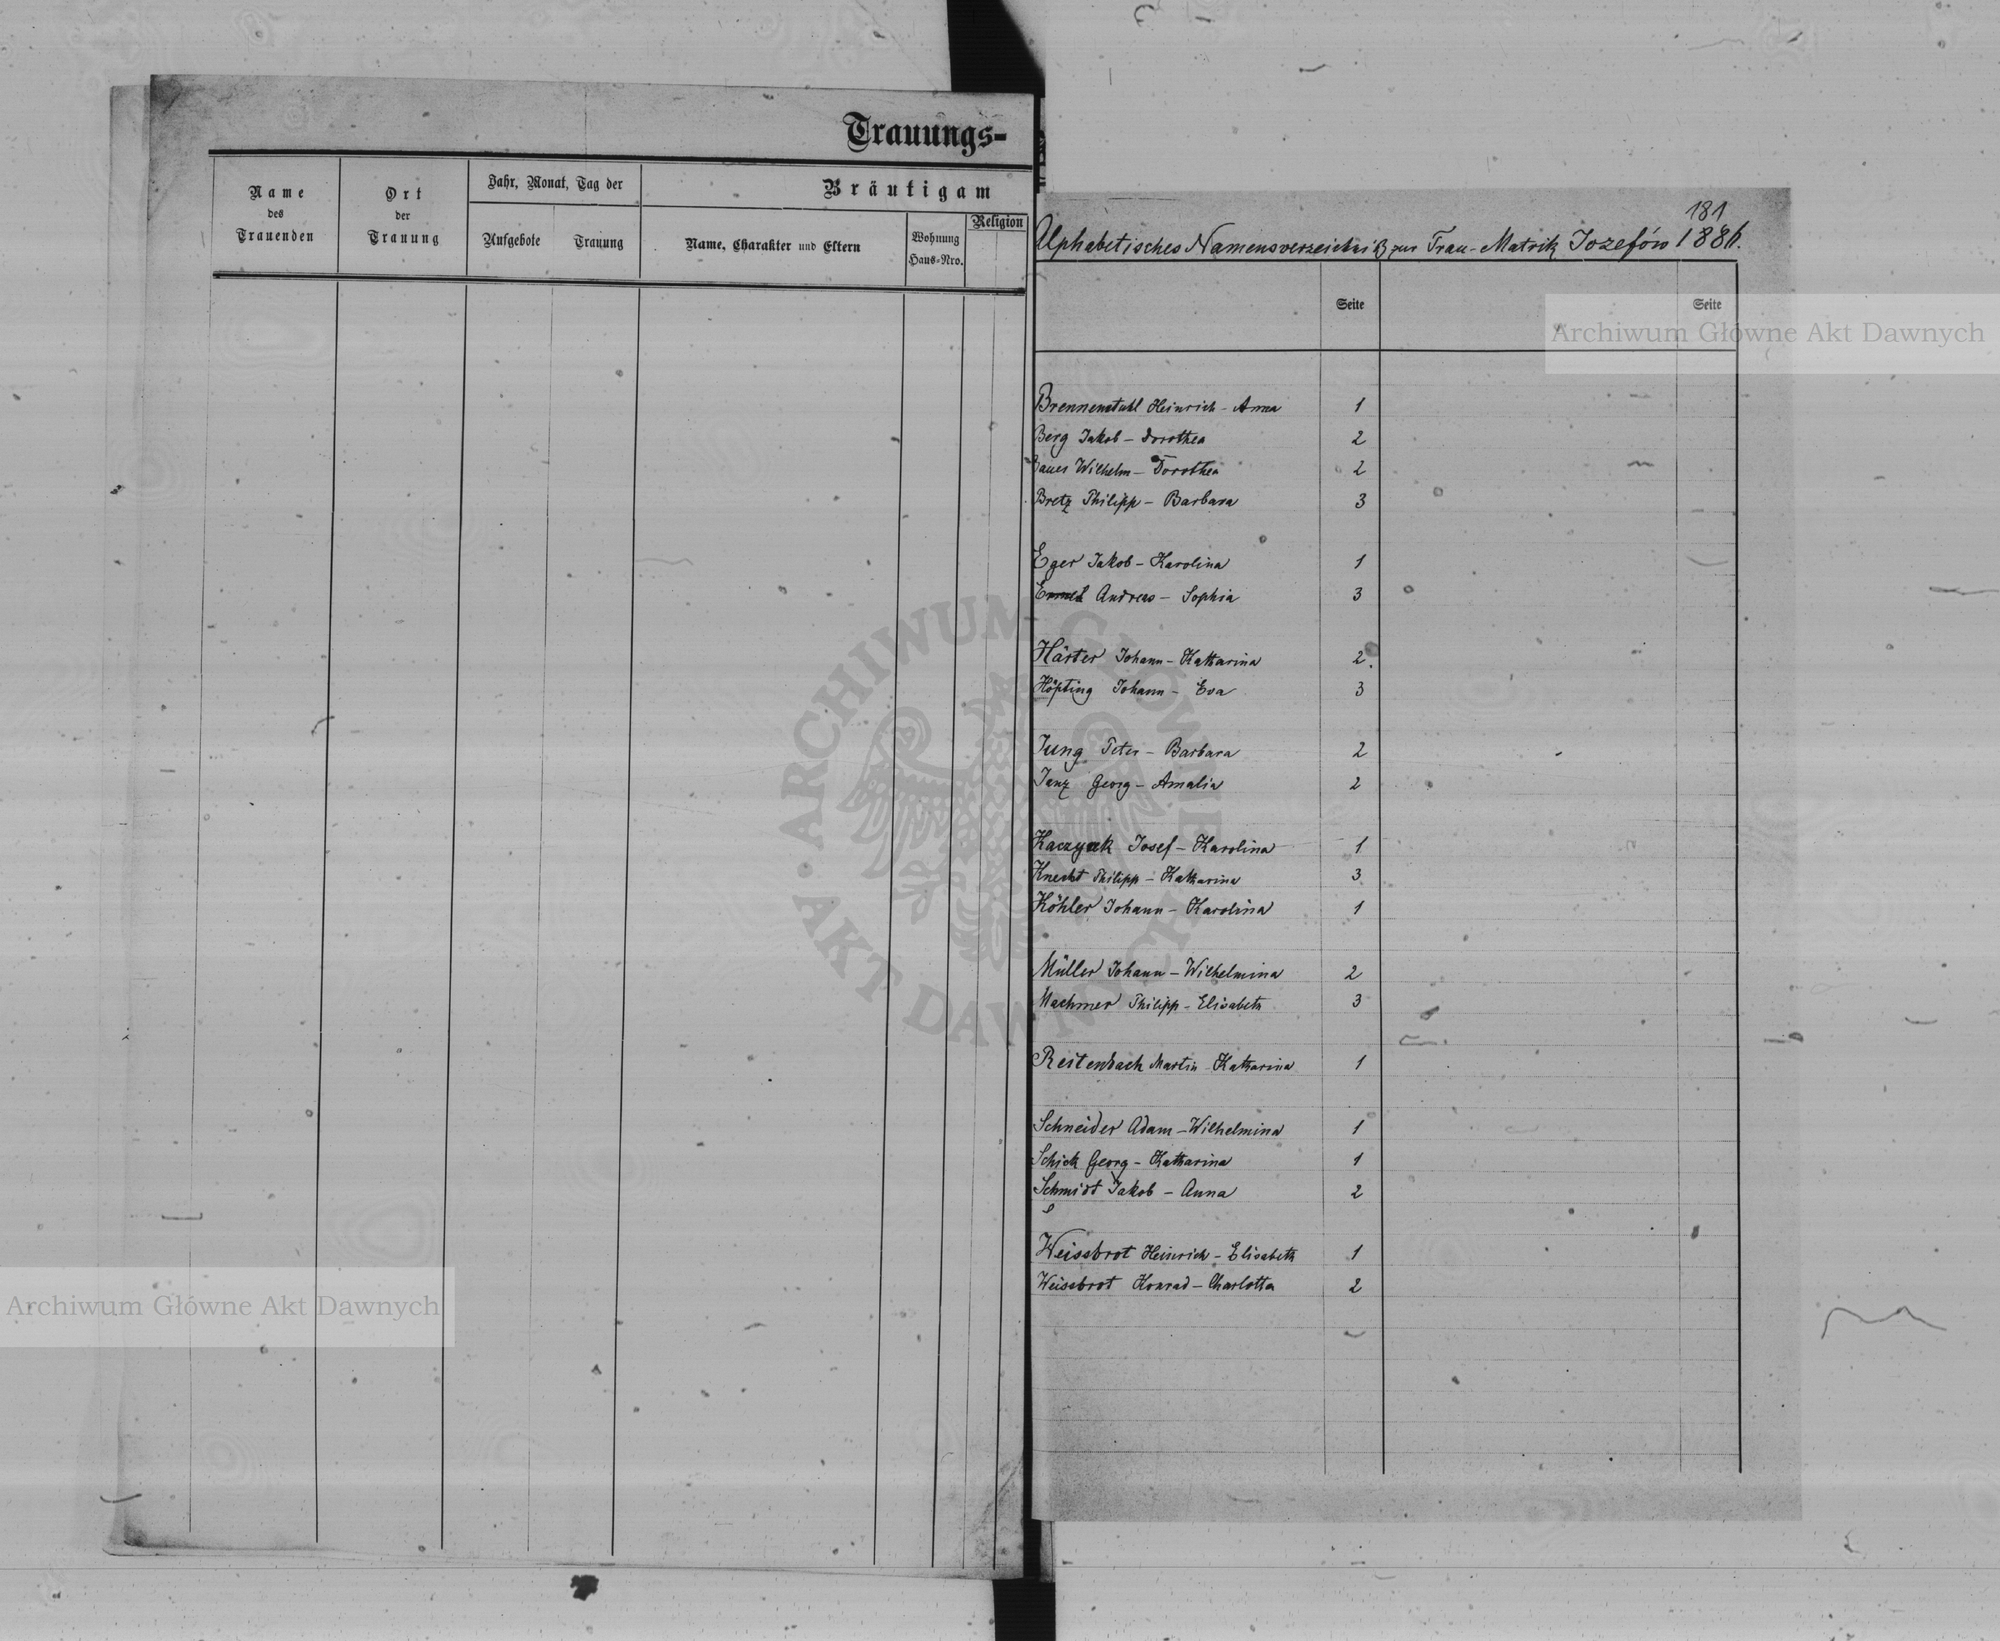 Trauungs-
Name des Trauenden
Ort der Trauung
Jahr, Monat, Tag der
Aufgebote
Trauung
Bräutigam
Name, Charakter und Eltern
Wohnung Haus-Nro.
Religion
181
Alphabetisches Namensverzeichniß zur Trau-Matrik Jozefów 1886.
Seite Seite
Brennenstuhl Heinrich - Anna 1
Berg Jakob - Dorothea 2
Bauer Wilhelm - Dorothea 2
Bretz Philipp - Barbara 3
Eger Jakob - Karolina 1
Andreas - Sophia 3
Härter Johann - Katharina 2.
Höpting Johann - Eva 3
Jung Peter - Barbara 2
Janz Georg - Amalia 2
Josef - Karolina 1
Knecht Philipp - Katharina 3
Köhler Johann - Karolina 1
Müller Johann - Wilhelmina 2
Machmer Philipp - Elisabeth 3
Reitenbach Martin - Katharina 1
Schneider Adam - Wilhelmina 1
Schick Georg - Katharina 1
Schmidt Jakob - Anna 2
Weissbrot Heinrich - Elisabeth 1
Weissbrot Konrad - Charlotta 2
Archiwum Główne Akt Dawnych
Archiwum Główne Akt Dawnych
ARCHIWUM GŁÓWNE AKT DAWNYCH